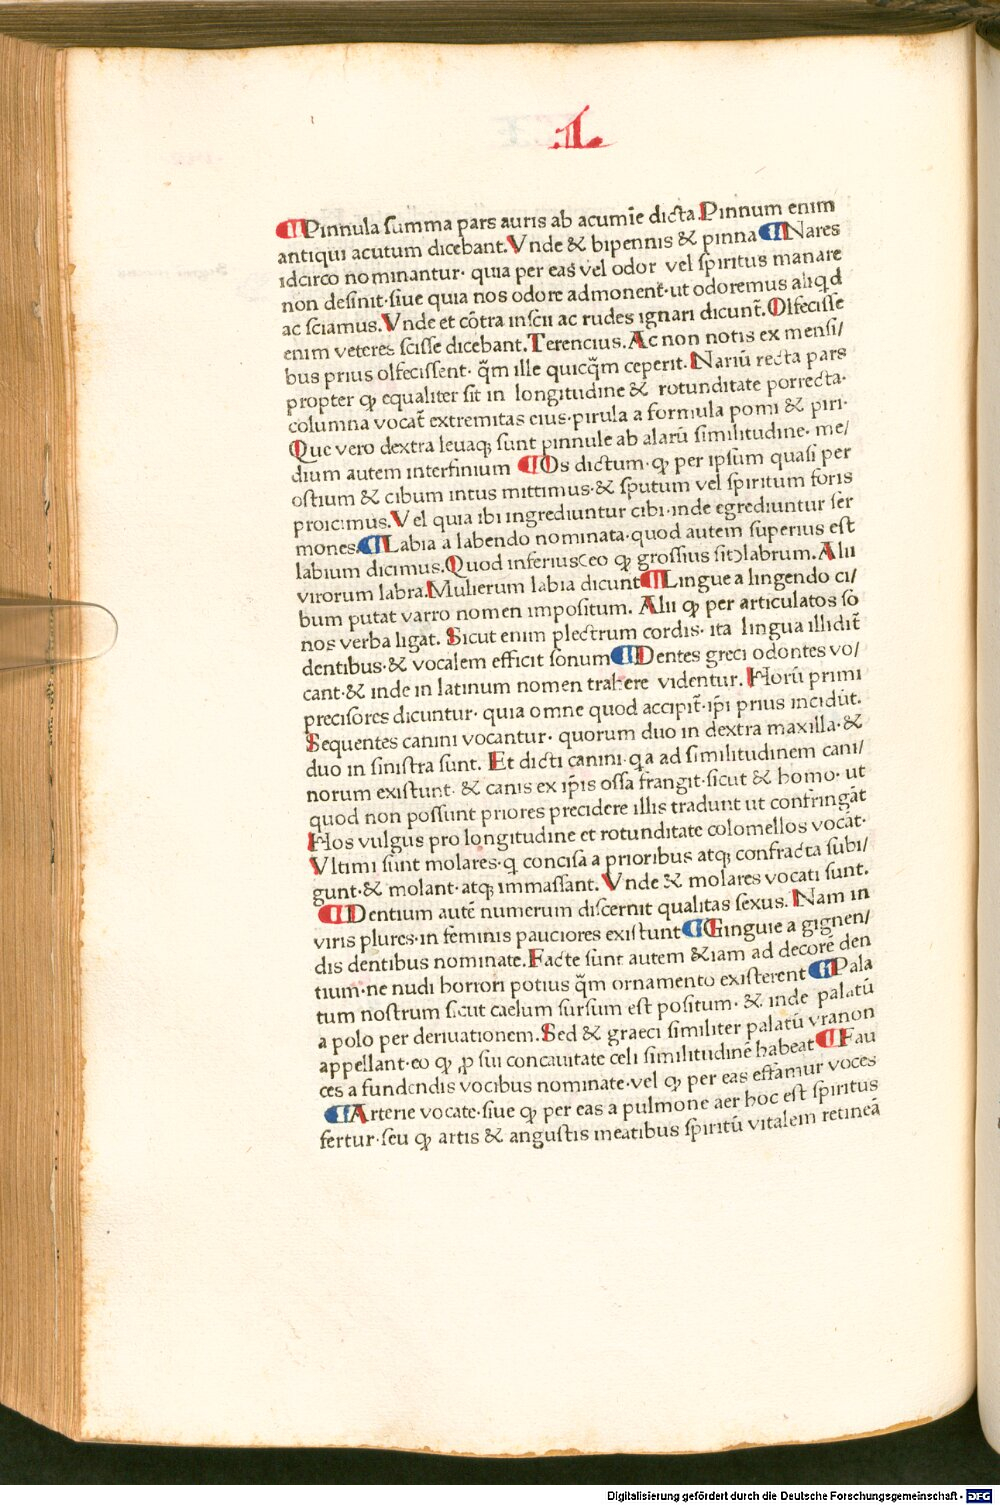 .L.
¶Pinnula ſumma pars auris ab acumīe dicta.Pinnum enim
antiqui acutum dicebant.Vnde & bipennis & pinna ¶Nares
idcirco nominantur· quia per eas vel odor vel ſpiritus manare
non deſinit·ſiue quia nos odore admonent̃·ut odoremus aliq̇d
ac ſciamus.Vnde et cōtra inſcii ac rudes ignari dicunt̃.Olfeciſſe
enim veteres ſciſſe dicebant.Terencius.Ac non notis ex menſi/
bus prius olfeciſſent· q̄m ille quicq̄m ceperit.Nariū recta pars
propter ꝙ equaliter ſit in longitudine & rotunditate porrecta·
columna vocat̃ extremitas eius·pirula a formula pomi & piri·
Que vero dextra leuaqꝫ ſunt pinnule ab alarū ſimilitudine· me/
dium autem interfinium ¶Os dictum·ꝙ per ipſum quaſi per
oſtium & cibum intus mittimus·& ſputum vel ſpiritum foris
proicimus.Vel quia ibi ingrediuntur cibi·inde egrediuntur ſer
mones.¶Labia a labendo nominata·quod autem ſuperius eſt
labium dicimus.Quod inferius(eo ꝙ groſſius ſit)labrum.Alii
virorum labra.Mulierum labia dicunt ¶Lingue a lingendo ci/
bum putat varro nomen impoſitum. Alii ꝙ per articulatos ſo
nos verba ligat. Sicut enim plectrum cordis· ita lingua illidit̃
dentibus·& vocalem efficit ſonum ¶Dentes greci odontes vo/
cant·& inde in latinum nomen trahere videntur. Horū primi
preciſores dicuntur· quia omne quod accipit̃·ip̄i prius incidūt.
Sequentes canini vocantur· quorum duo in dextra maxilla·&
duo in ſiniſtra ſunt. Et dicti canini·qa ad ſimilitudinem cani/
norum exiſtunt· & canis ex ip̄is oſſa frangit·ſicut & homo· ut
quod non poſſunt priores precidere illis tradunt ut confringāt
Hos vulgus pro longitudine et rotunditate colomellos vocāt·
Vltimi ſunt molares·q conciſa a prioribus atqꝫ confracta ſubi/
gunt·& molant·atqꝫ immaſſant. Vnde & molares vocati ſunt.
¶Dentium autē numerum diſcernit qualitas ſexus. Nam in
viris plures·in feminis pauciores exiſtunt ¶Ginguie a gignen/
dis dentibus nominate.Facte ſunt autem &iam ad decorē den
tium·ne nudi horrori potius q̄m ornamento exiſterent ¶Pala
tum noſtrum ſicut caelum ſurſum eſt poſitum· & inde palatū
a polo per deriuationem.Sed & graeci ſimiliter palatū vranon
appellant·eo ꝙ ꝓ ſui concauitate celi ſimilitudinē habeat ¶Fau
ces a fundendis vocibus nominate·vel ꝙ per eas effamur voces
¶Arterie vocate·ſiue ꝙ per eas a pulmone aer hoc eſt ſpiritus
fertur·ſeu ꝙ artis & anguſtis meatibus ſpiritū vitalem retineā
Digitalisierung gefördert durch die Deutsche Forschungsgemeinschaft - DFG